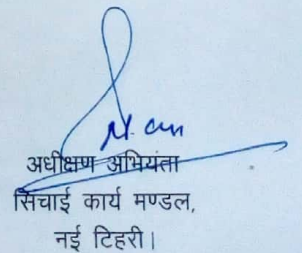 अधीक्षण अभियंता
सिंचाई कार्य मण्डल,
नई टिहरी।